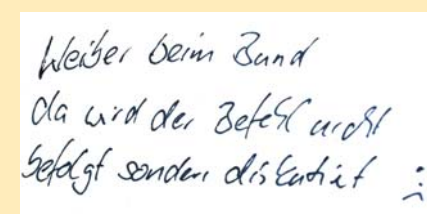 Weiber beim Bund
da wird der Befehl nicht
befolgt sondern diskutiert :